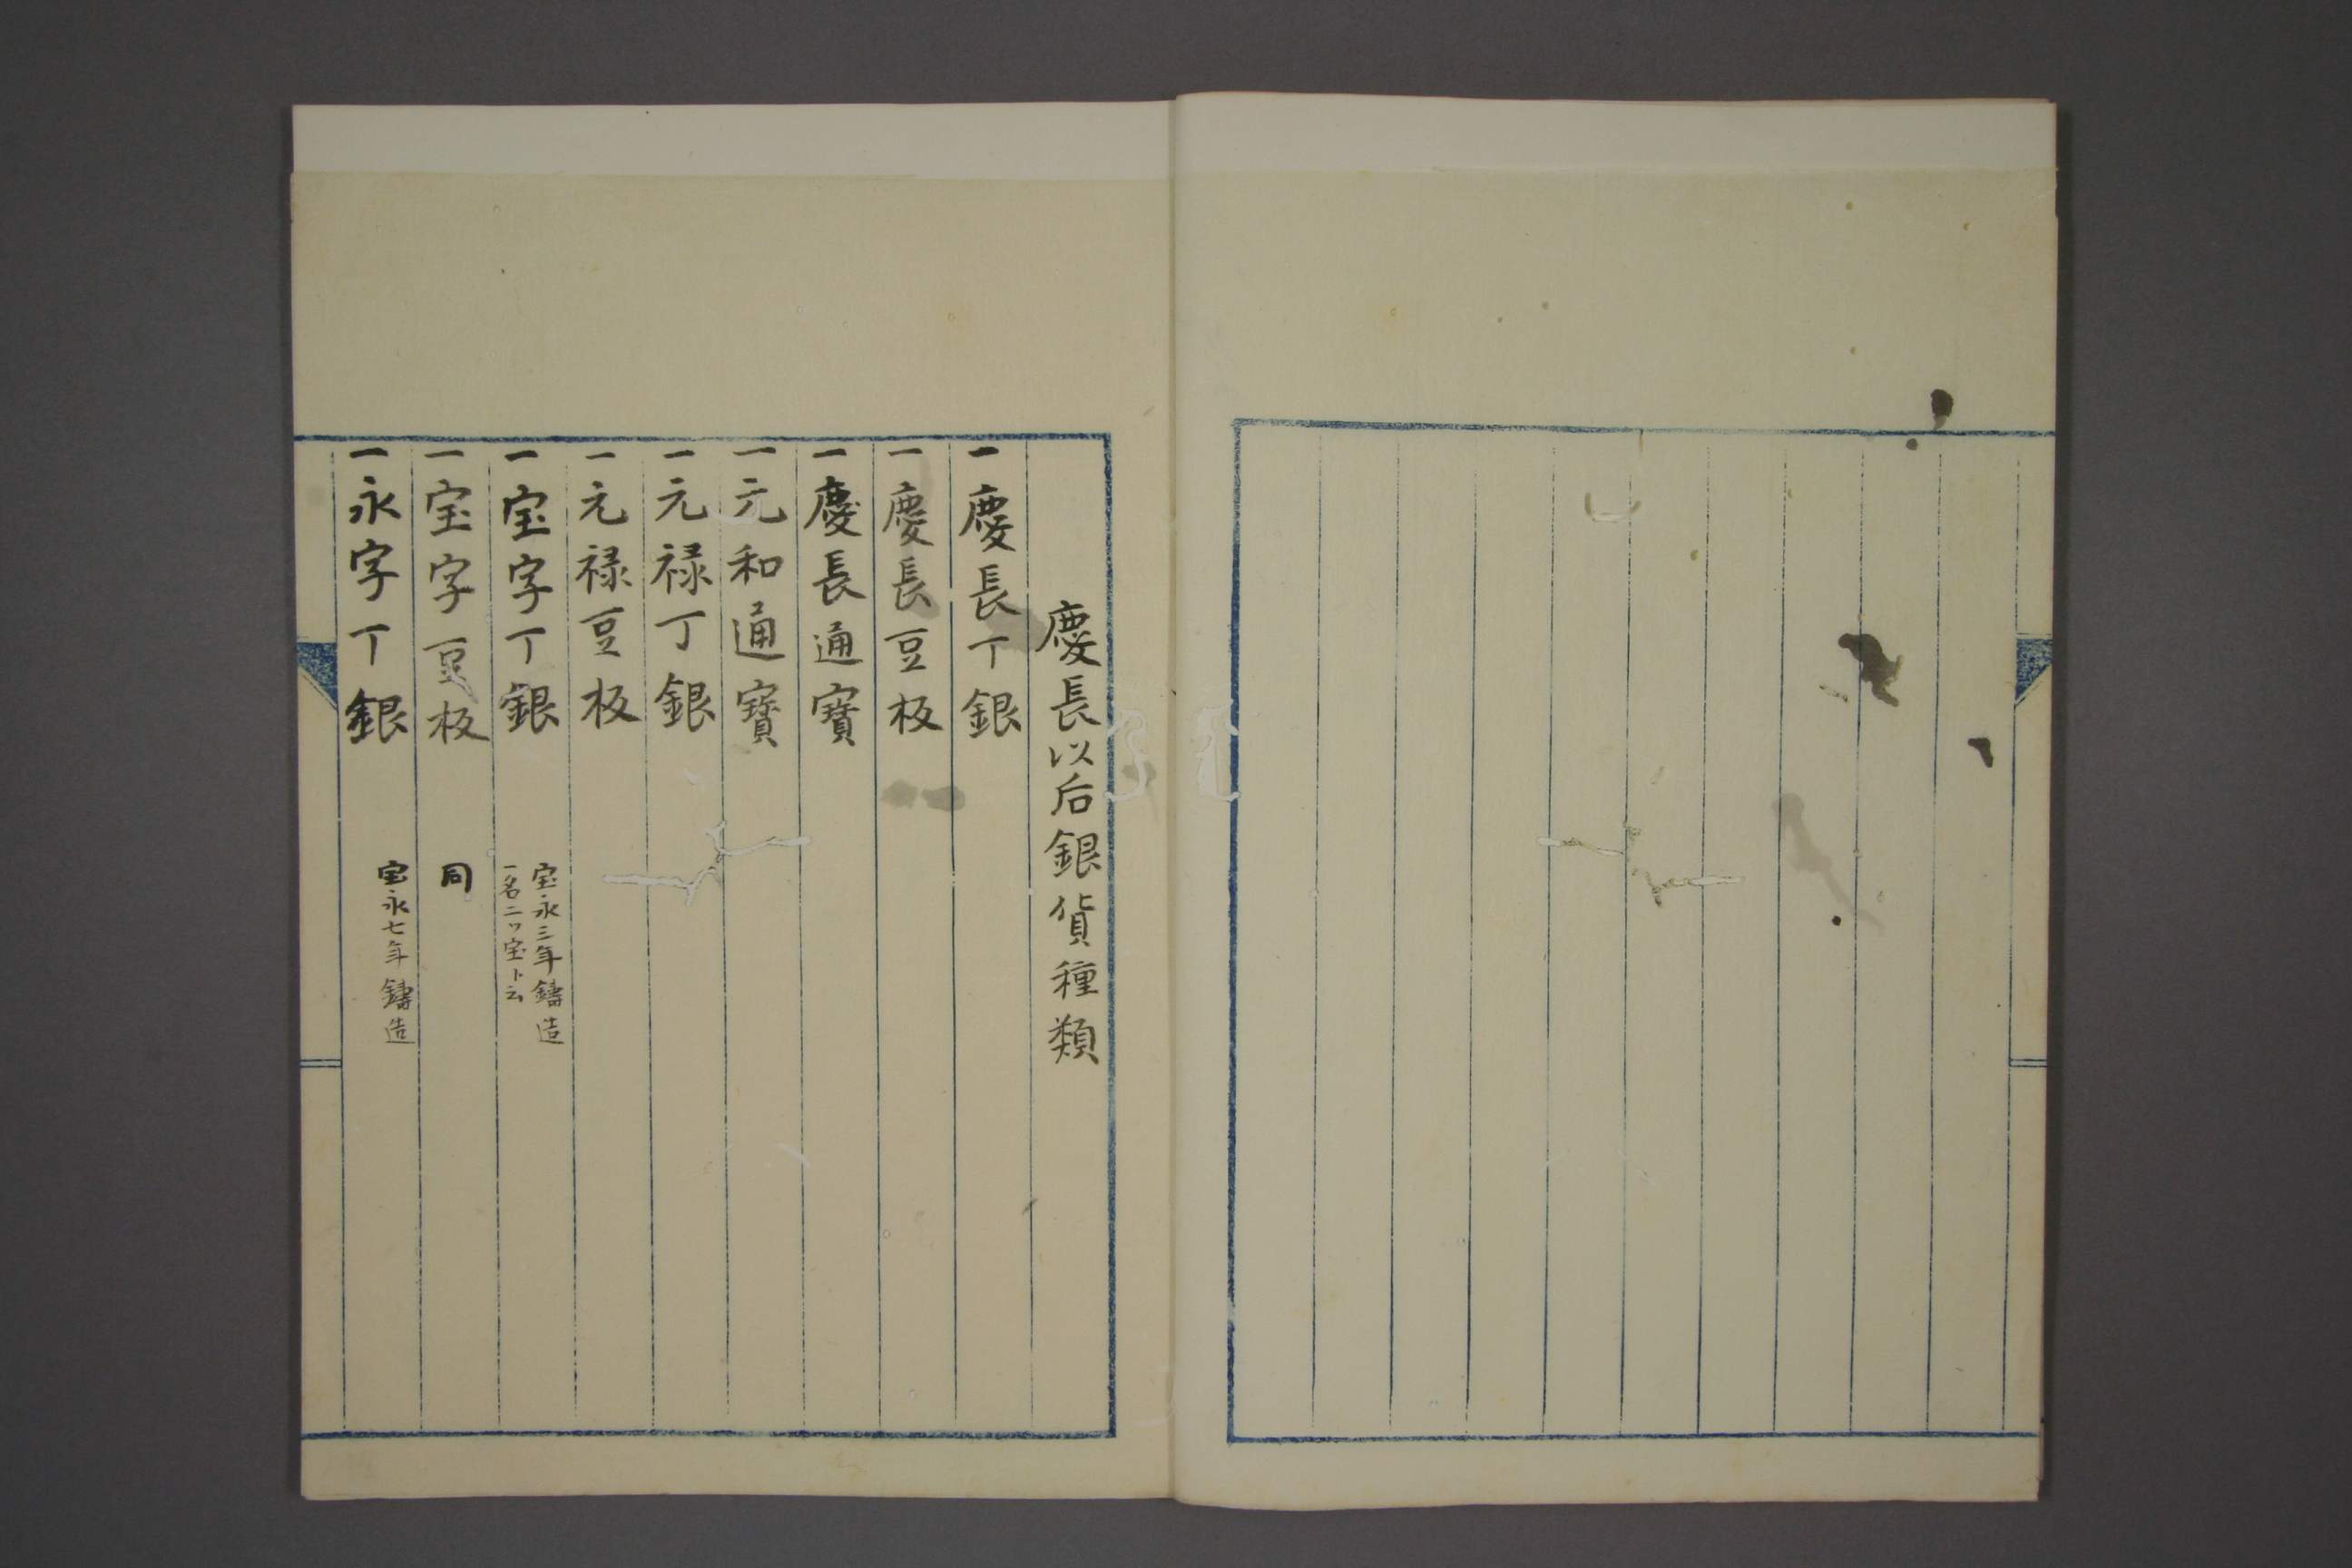 慶長以后銀貨種類
一慶長丁銀
一慶長豆板
一慶長通寳
一元和通寳
一元禄丁銀
一元禄豆板
一宝字丁銀 宝永三年鑄造
一名ニツ宝ト云
一宝字豆板 同
一永字丁銀 宝永七年鑄造